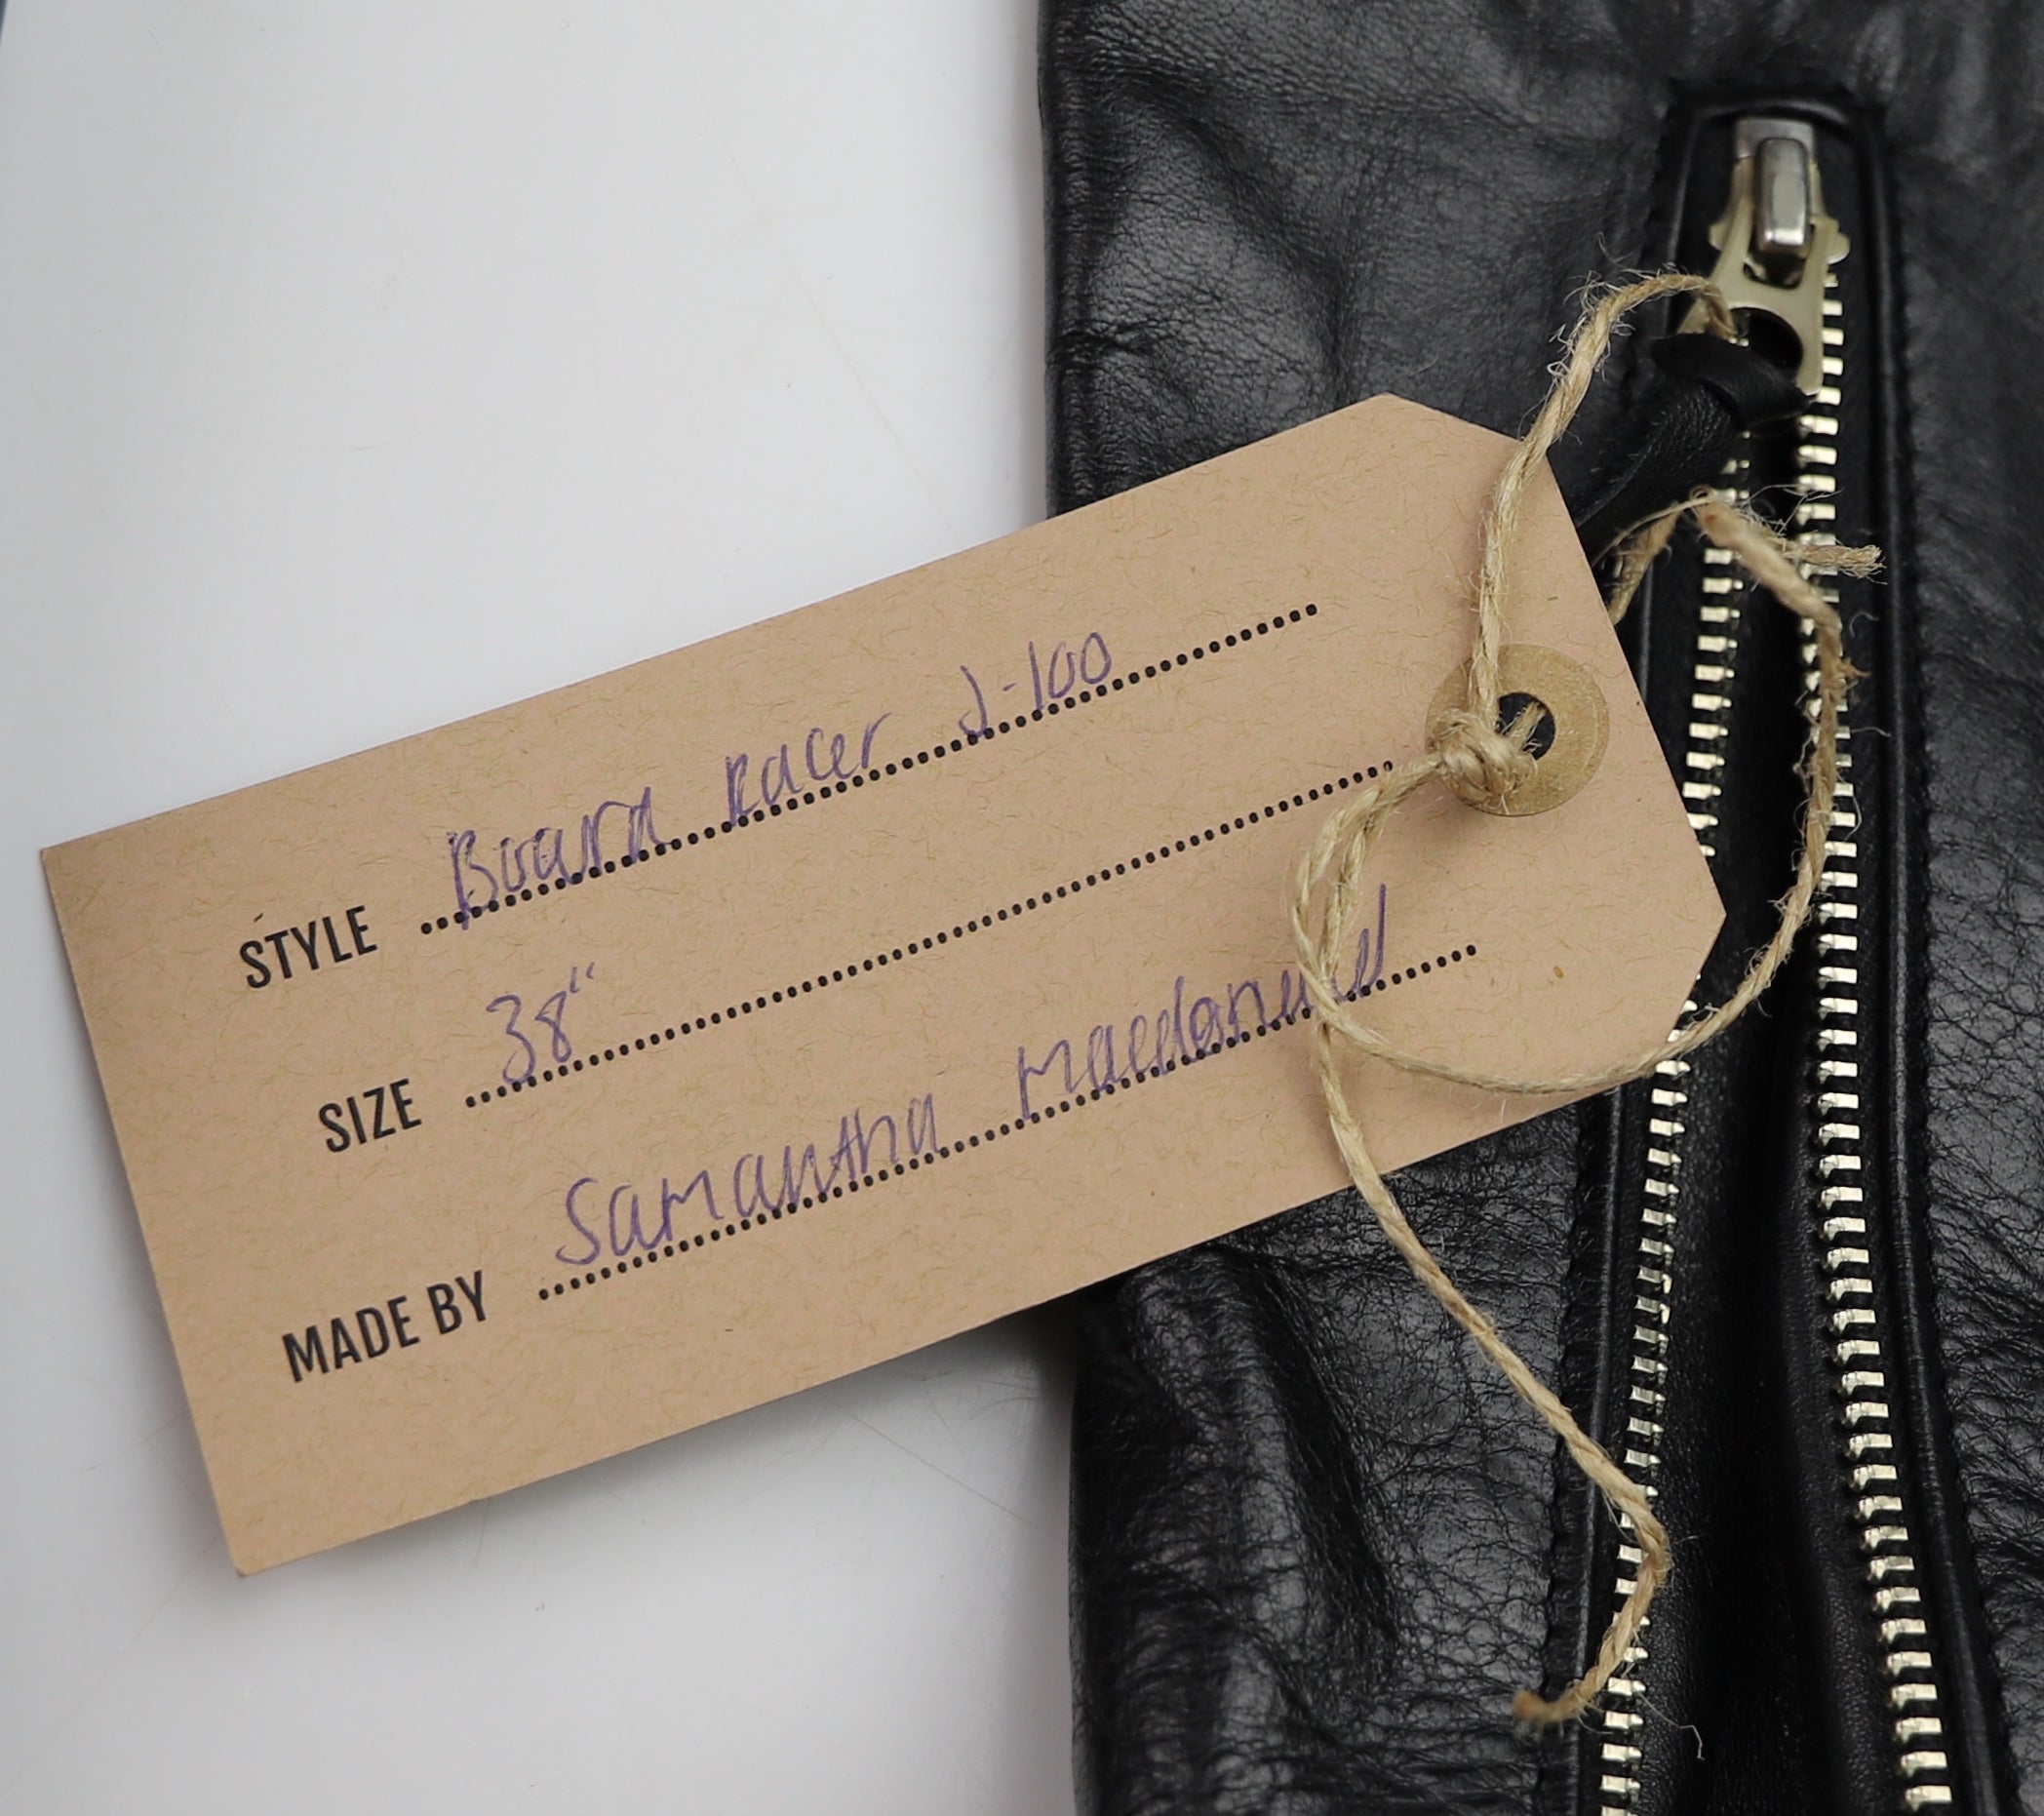 STYLE Board Racer J-100
SIZE 38"
MADE BY Samantha Macdonald